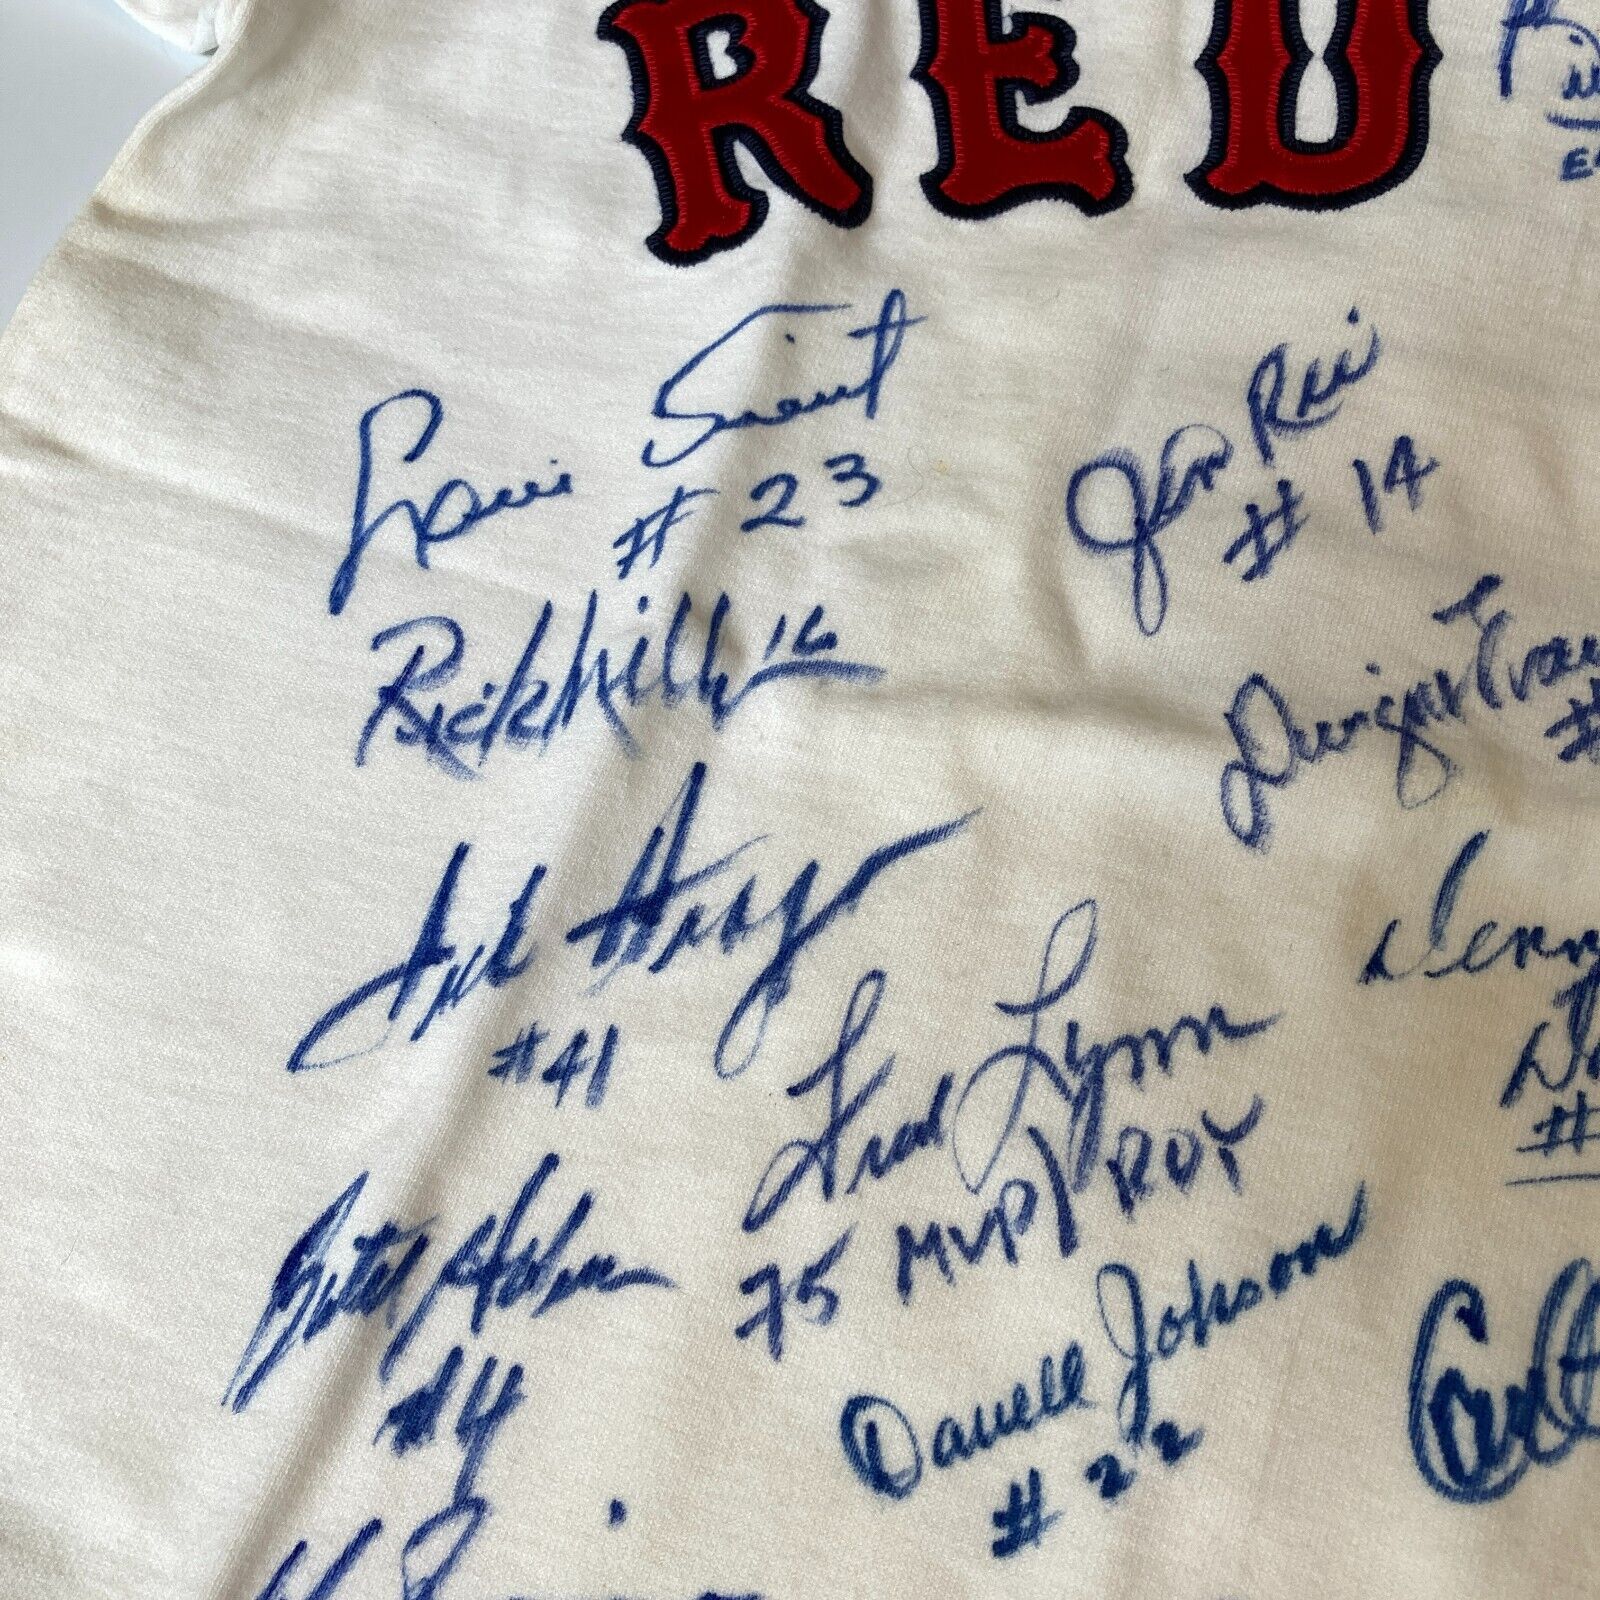 RED
Luis Tiant
#23
Jim Rice
#14
Rick Miller 16
Dwight Evans
#
Dick
#41
Fred Lynn
75 MVP/ROY
Denny
#
#4
Darrell Johnson
#22